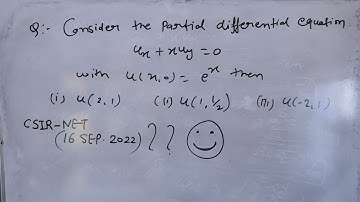 Q:- Consider the Partial differential equation
u_x + x u_y = 0
with u(x,0) = e^x then
(i) u(2,1) (ii) u(1,1/2) (iii) u(-2,1)
CSIR-NET
(16 SEP. 2022) ??